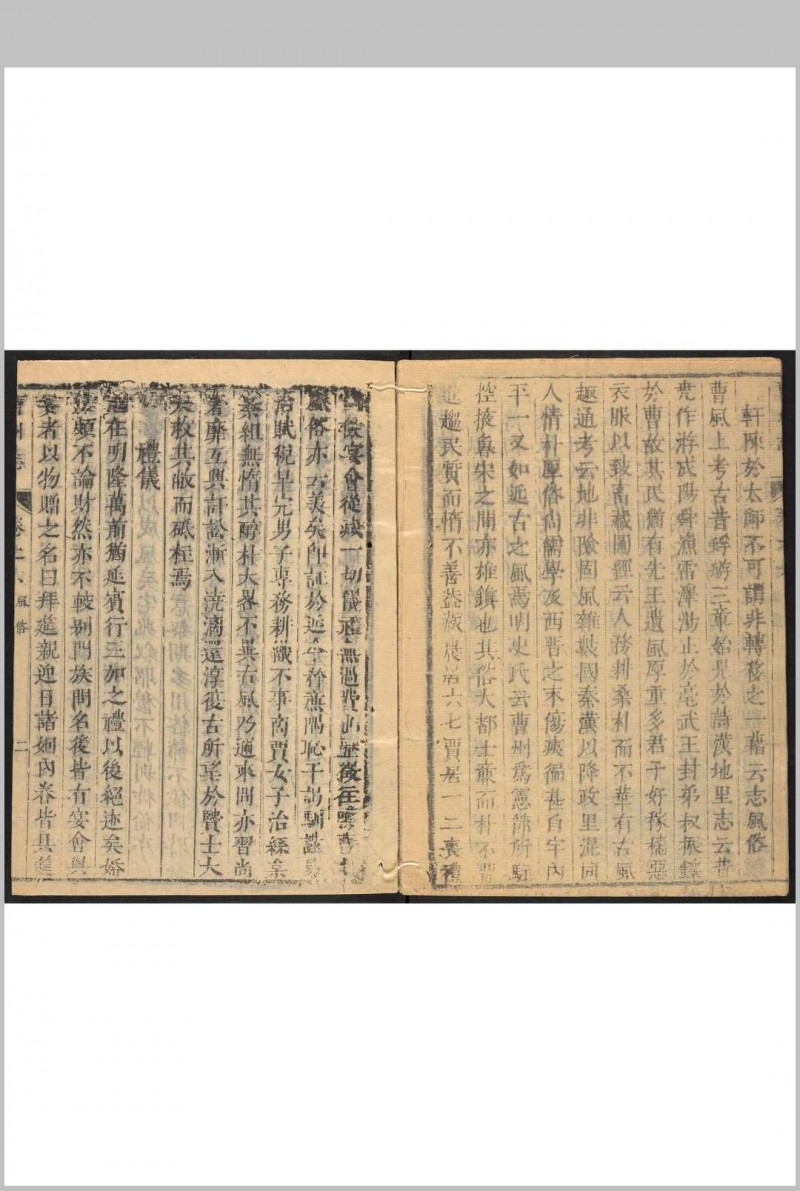 軒陳於太師不可謂非轉移之一藉云志風俗
曹風上考古昔蜉蝣三章始見於詩漢地里志云昔
堯作游成陽舜漁雷澤湯止於亳武王封弟叔振鐸
於曹故其民猶有先王遺風厚重多君子好稼穡惡
衣服以致畜藏圖經云人務耕桑朴而不華有古風
趣通考云地非險固風雜數國秦漢以降政里混同
人情朴厚俗尚儒學及西晉之末傷殘徧甚自宇內
平一又如近古之風焉明史氏云曹州為憲節所駐
控掖魯宋之間亦雄鎮也其俗大都士廉而朴不習
進趨民質而惰不善蓋藏農居六七賈居一二喪禮
儉宴會從減一切儀禮無過費
俗亦云美矣即証於近今矜廉隅恥干謁馴謹
治賦稅早完男子專務耕讀不事商賈女子治絲枲
纂組無惰其醇朴大畧不異古風乃邇來間亦習尚
奢靡互興訐訟漸入澆漓還淳復古所望於賢士大
夫救其敝而砥柱焉
禮儀
冠在明隆萬前猶延賓行三加之禮以後絕迹矣婚
頗不論財然亦不較别門族問名後皆有宴會與
宴者以物贈之名曰拜進親迎日諸姻內眷皆具
曹州志
卷之
風俗
二